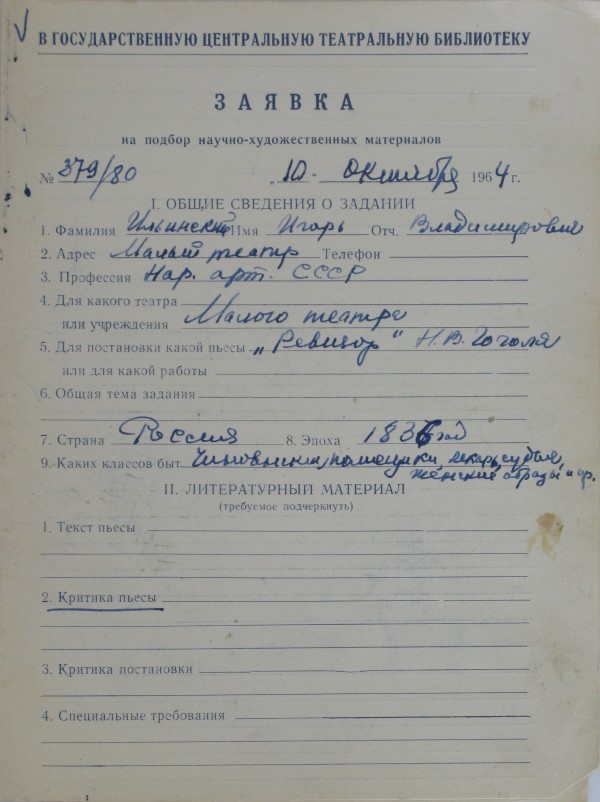 В ГОСУДАРСТВЕННУЮ ЦЕНТРАЛЬНУЮ ТЕАТРАЛЬНУЮ БИБЛИОТЕКУ
ЗАЯВКА
на подбор научно-художественных материалов
№ 379/80 „10“ октября 1964 г.
I. ОБЩИЕ СВЕДЕНИЯ О ЗАДАНИИ
1. Фамилия Ильинский Имя Игорь Отч. Владимирович
2. Адрес Малый театр Телефон
3. Профессия Нар. арт. СССР
4. Для какого театра
или учреждения Малого театра
5. Для постановки какой пьесы „Ревизор“ Н.В. Гоголя
или для какой работы
6. Общая тема задания
7. Страна Россия 8. Эпоха 1836 год
9. Каких классов быт Чиновники, помещики, лекарь, судья,
женские образы и др.
II. ЛИТЕРАТУРНЫЙ МАТЕРИАЛ
(требуемое подчеркнуть)
1. Текст пьесы
2. Критика пьесы
3. Критика постановки
4. Специальные требования
1